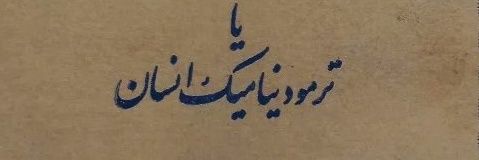 یا
ترمودینامیک انسان